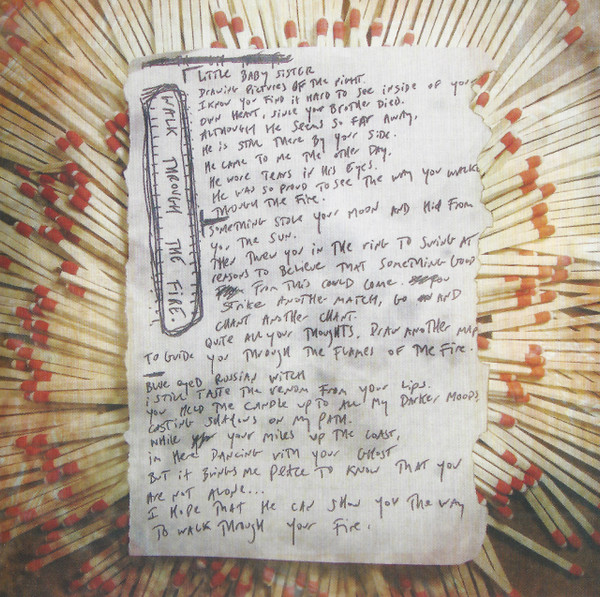 WALK THROUGH THE FIRE
LITTLE BABY SISTER
DRAWING PICTURES OF THE NIGHT.
I KNOW YOU FIND IT HARD TO SEE INSIDE OF YOUR
OWN HEART, SINCE YOUR BROTHER DIED.
ALTHOUGH HE SEEMS SO FAR AWAY,
HE IS STILL THERE BY YOUR SIDE.
HE CAME TO ME THE OTHER DAY.
HE WORE TEARS IN HIS EYES.
HE WAS SO PROUD TO SEE THE WAY YOU WALKED
THROUGH THE FIRE.
SOMETHING STOLE YOUR MOON AND HID FROM
YOU THE SUN.
THEN THREW YOU IN THE RING TO SWING AT
REASONS TO BELIEVE THAT SOMETHING GOOD
FROM THIS COULD COME.
STRIKE ANOTHER MATCH, GO ON AND
CHANT ANOTHER CHANT.
QUITE ALL YOUR THOUGHTS, DRAW ANOTHER MAP
TO GUIDE YOU THROUGH THE FLAMES OF THE FIRE.
BLUE EYED RUSSIAN WITCH
I STILL TASTE THE VENOM FROM YOUR LIPS.
YOU HELD THE CANDLE UP TO ALL MY DARKER MOODS
CASTING SHADOWS ON MY PATH.
WHILE YOUR MILES UP THE COAST,
IM HERE DANCING WITH YOUR GHOST
BUT IT BRINGS ME PEACE TO KNOW THAT YOU
ARE NOT ALONE...
I HOPE THAT HE CAN SHOW YOU THE WAY
TO WALK THROUGH YOUR FIRE.